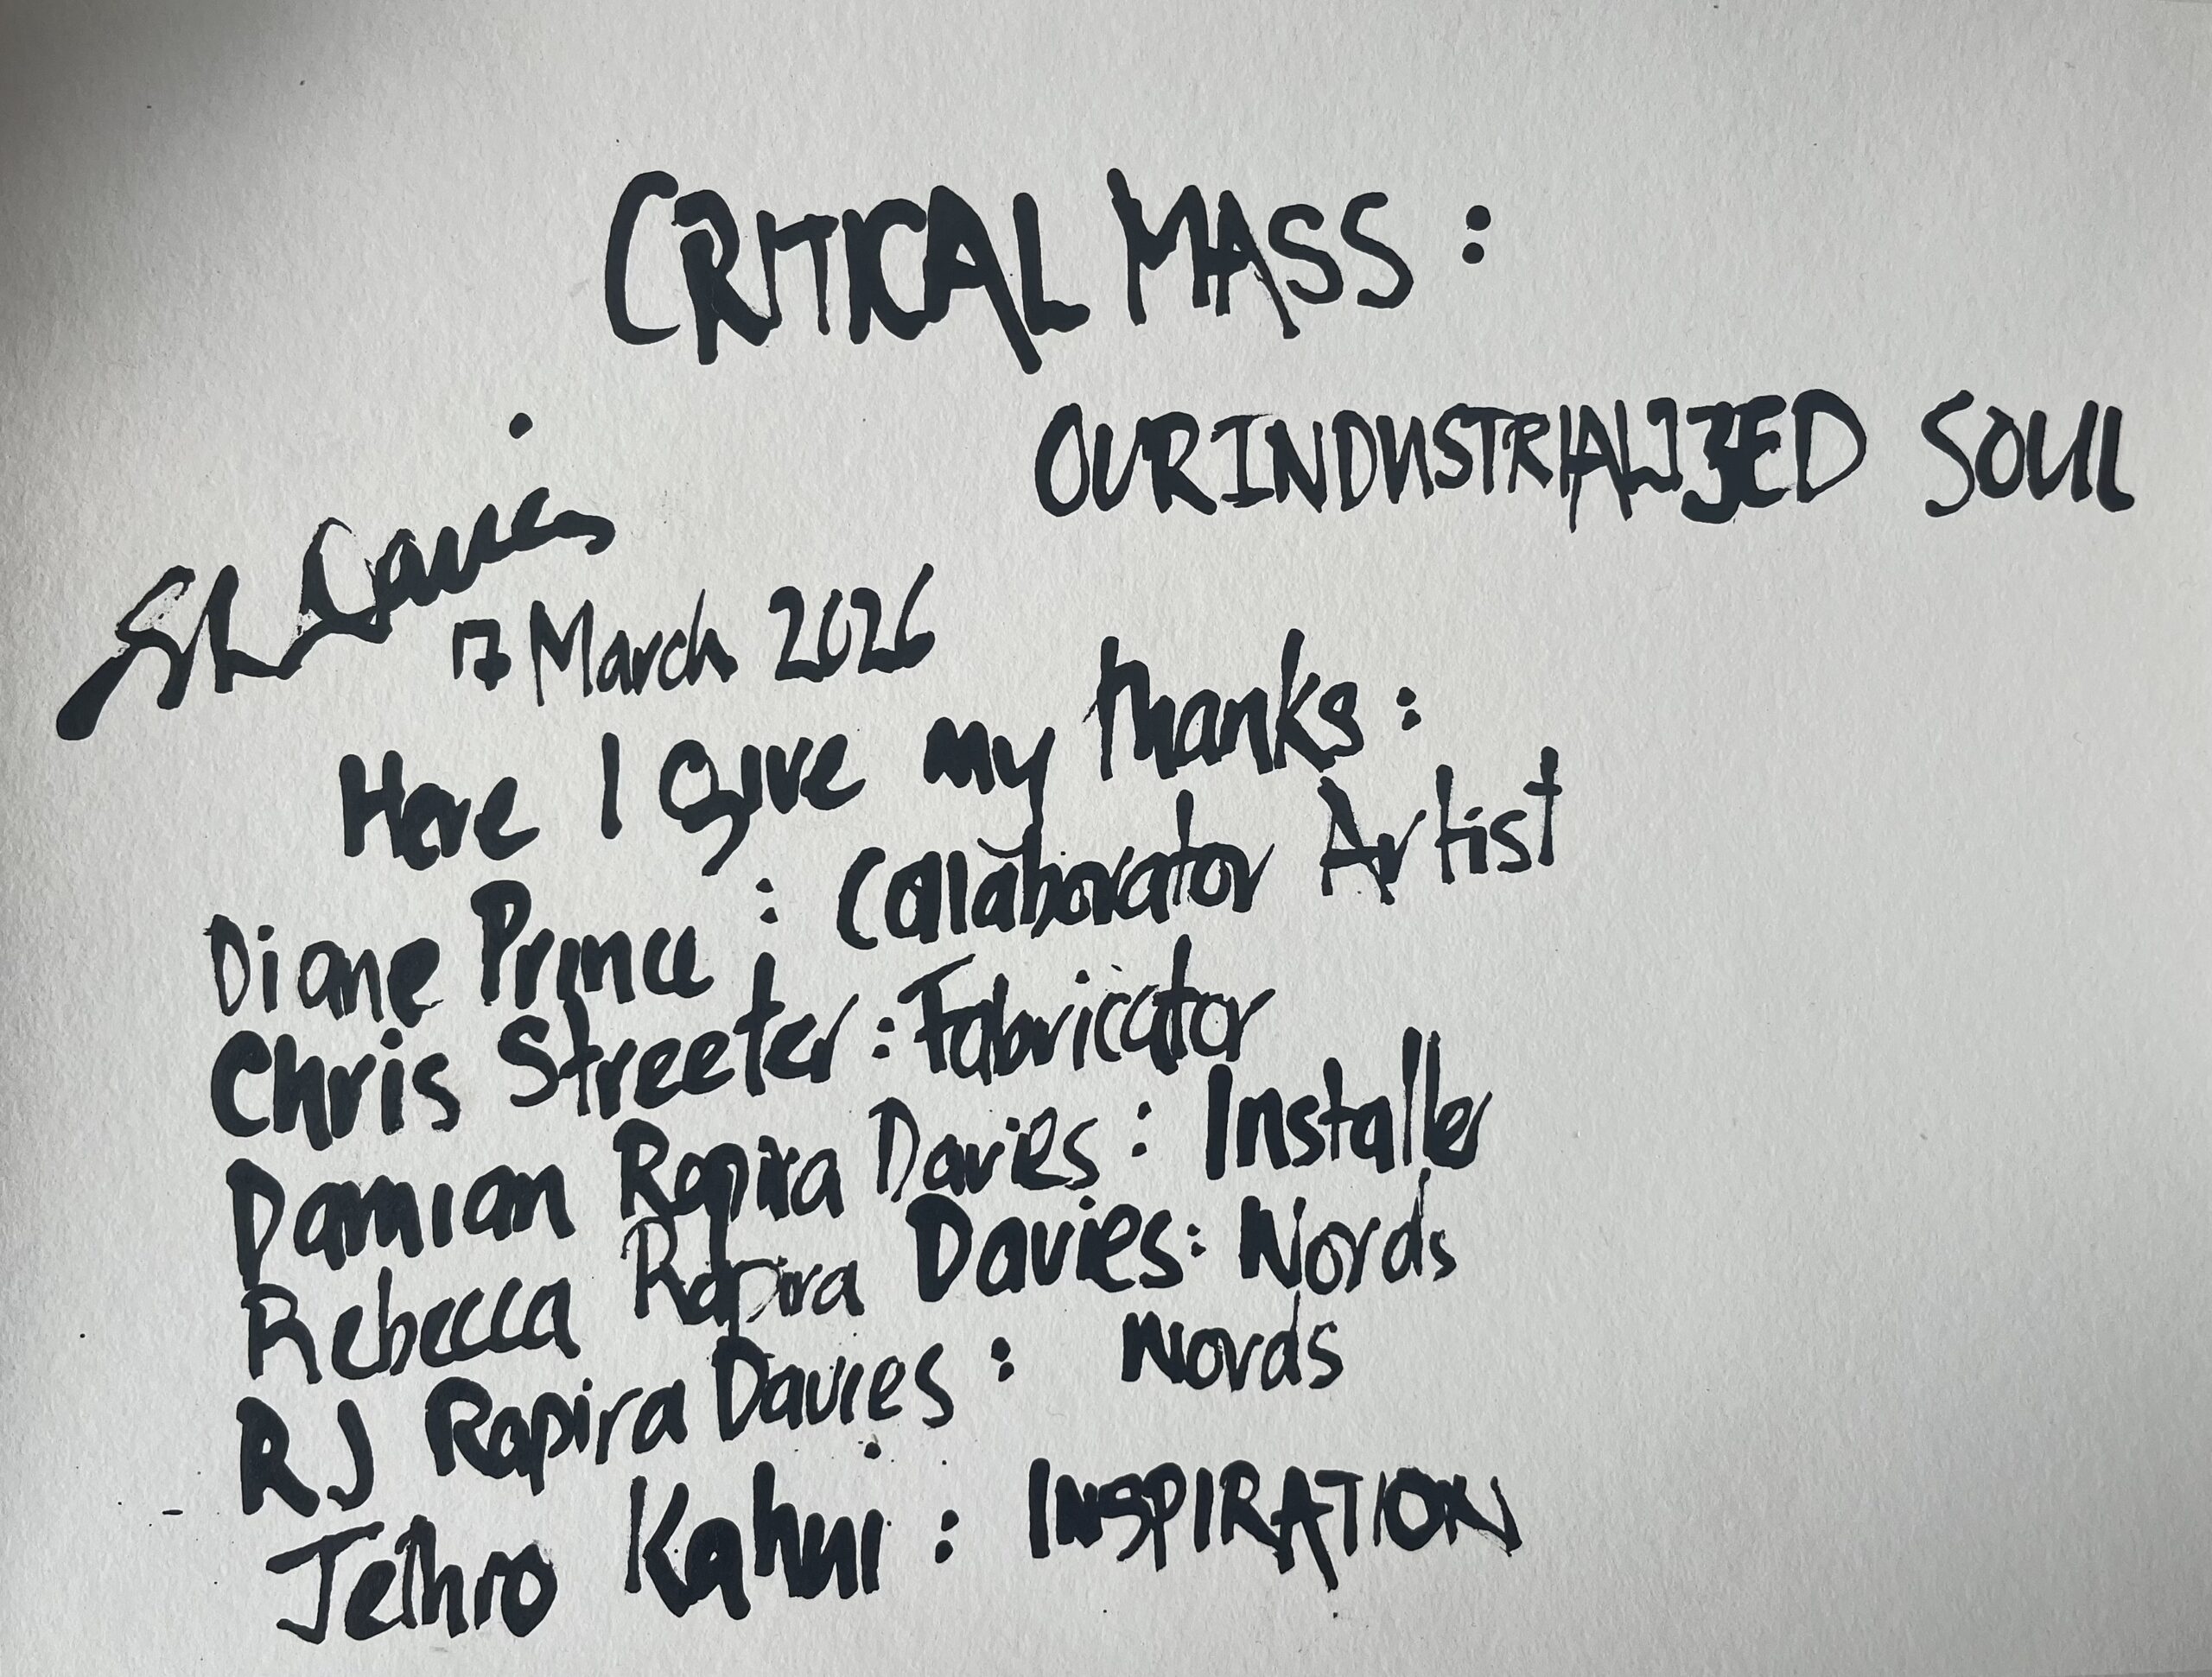 CRITICAL MASS :
OUR INDUSTRIALIZED SOUL
SL Davies
17 March 2026
Here I give my thanks :
Diane Prince : Collaborator Artist
Chris Streeter : Fabricator
Damian Rapira Davies : Installer
Rebecca Rapira Davies : Words
RJ Rapira Davies : Words
Jethro Kahui : INSPIRATION